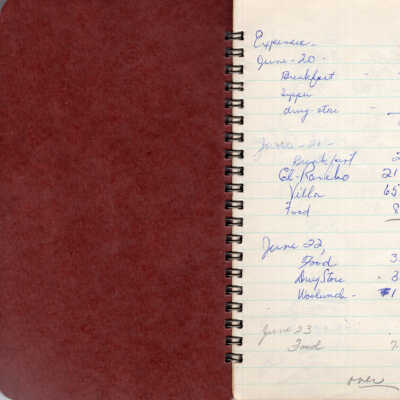 Expenses -
June - 20 -
Breakfast -
Supper
drug store -
June - 21 -
Breakfast 2
El-Rancho 21
Villa 65
Food 8
June 22,
Food 3
Drug Store - 3
- $1
June 23
Food 7
over